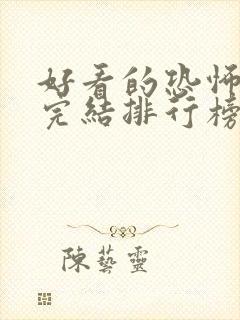 好看的恐怖
完結排行榜
陳藝靈